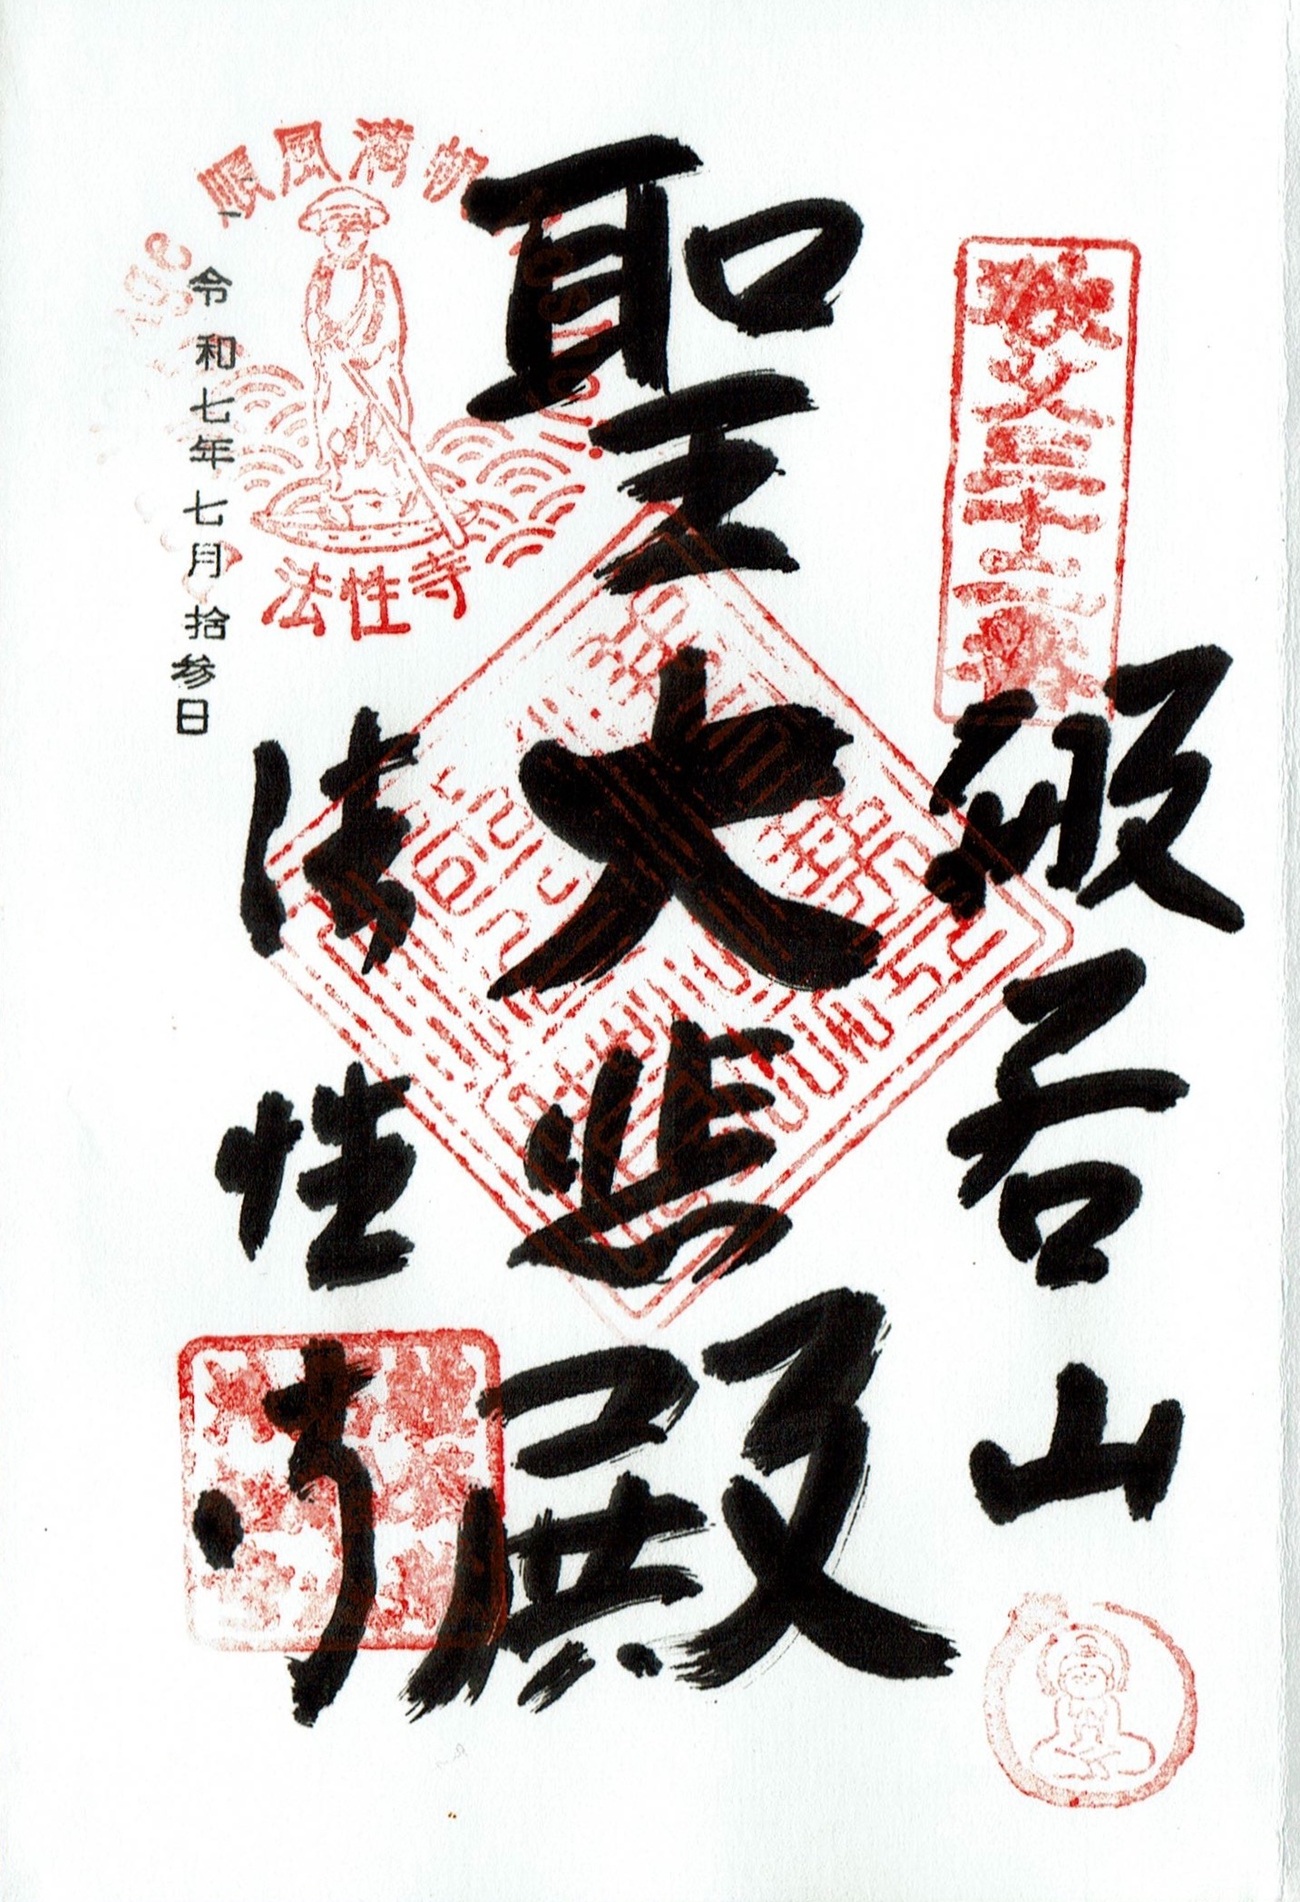 秩父三十二番
般若山
聖大悲殿
法性寺
順風満帆
法性寺
令和七年七月拾参日